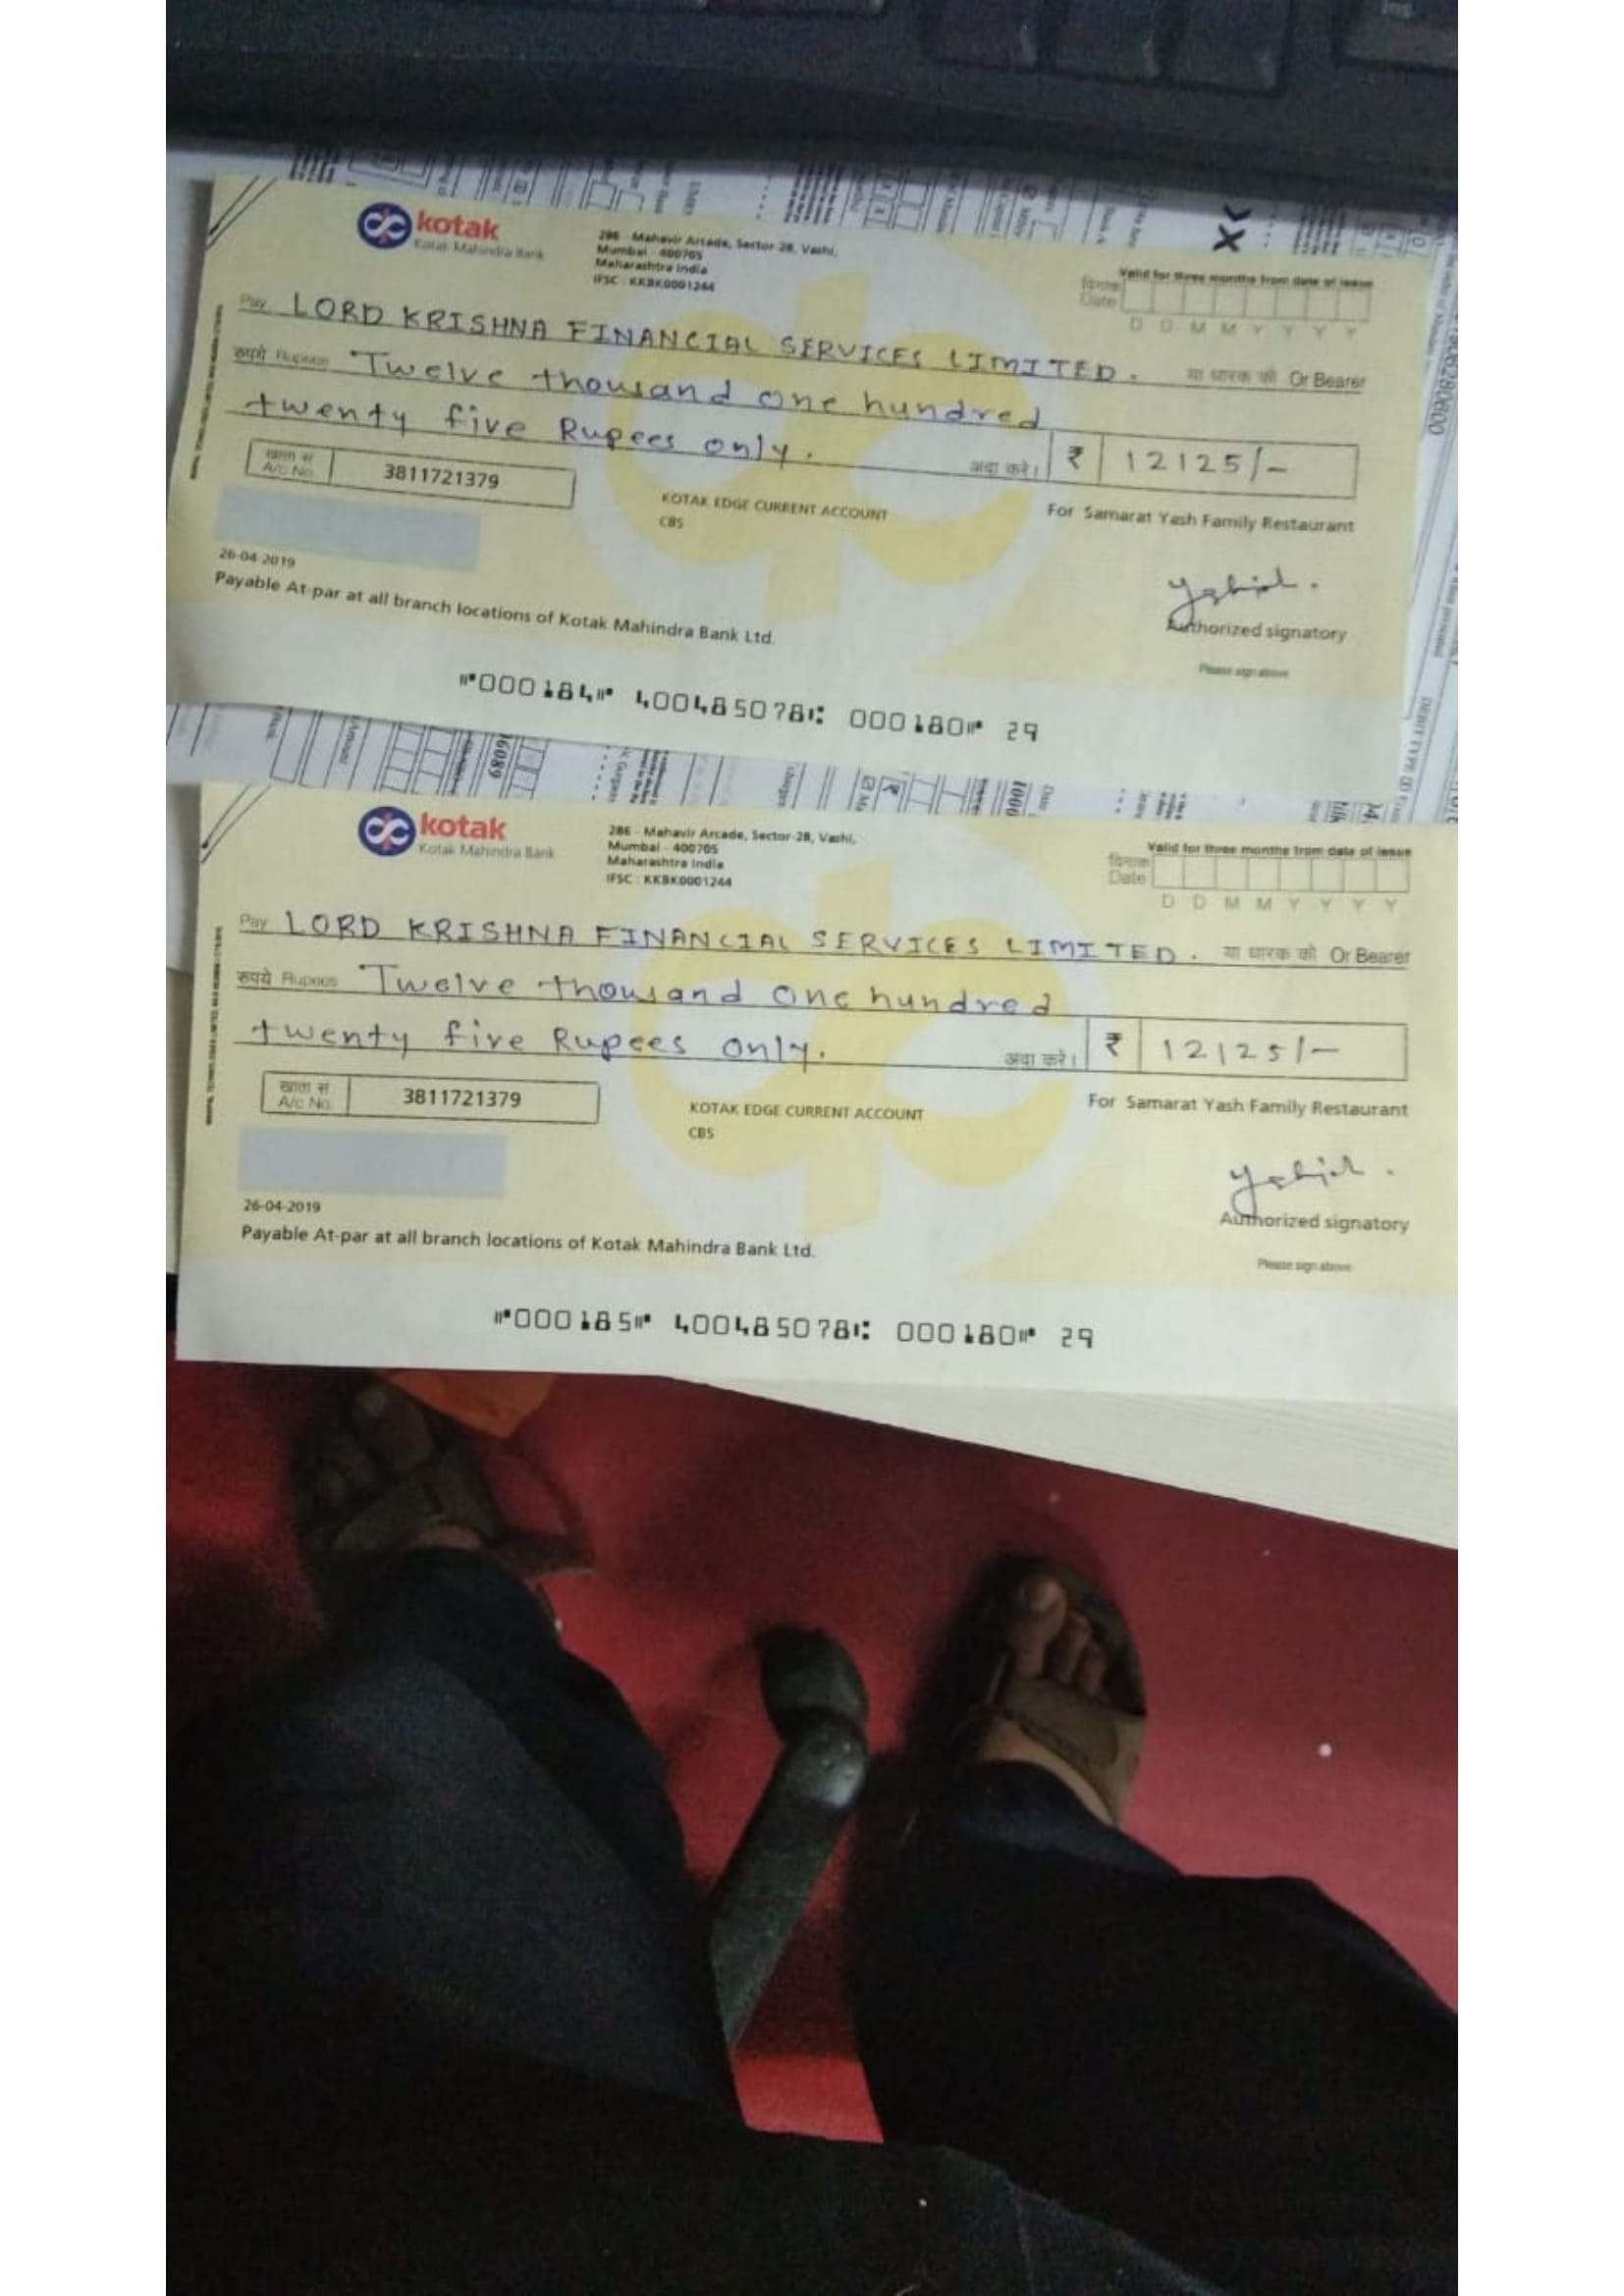 kotak
Kotak Mahindra Bank
286 - Mahavir Arcade, Sector-28, Vashi,
Mumbai - 400705
Maharashtra India
IFSC : KKBK0001244
Valid for three months from date of issue
दिनांक
Date
D D M M Y Y Y Y
Pay LORD KRISHNA FINANCIAL SERVICES LIMITED. या धारक को Or Bearer
रुपये Rupees Twelve thousand one hundred
twenty five Rupees only. अदा करे। ₹ 12125/-
खाता सं
A/c No. 3811721379
KOTAK EDGE CURRENT ACCOUNT
CBS
For Samarat Yash Family Restaurant
26-04-2019
Payable At-par at all branch locations of Kotak Mahindra Bank Ltd.
Authorized signatory
Please sign above
⑈000184⑈ 400485078⑆ 000180⑈ 29
kotak
Kotak Mahindra Bank
286 - Mahavir Arcade, Sector-28, Vashi,
Mumbai - 400705
Maharashtra India
IFSC : KKBK0001244
Valid for three months from date of issue
दिनांक
Date
D D M M Y Y Y Y
Pay LORD KRISHNA FINANCIAL SERVICES LIMITED. या धारक को Or Bearer
रुपये Rupees Twelve thousand one hundred
twenty five Rupees only. अदा करे। ₹ 12125/-
खाता सं
A/c No. 3811721379
KOTAK EDGE CURRENT ACCOUNT
CBS
For Samarat Yash Family Restaurant
26-04-2019
Payable At-par at all branch locations of Kotak Mahindra Bank Ltd.
Authorized signatory
Please sign above
⑈000185⑈ 400485078⑆ 000180⑈ 29